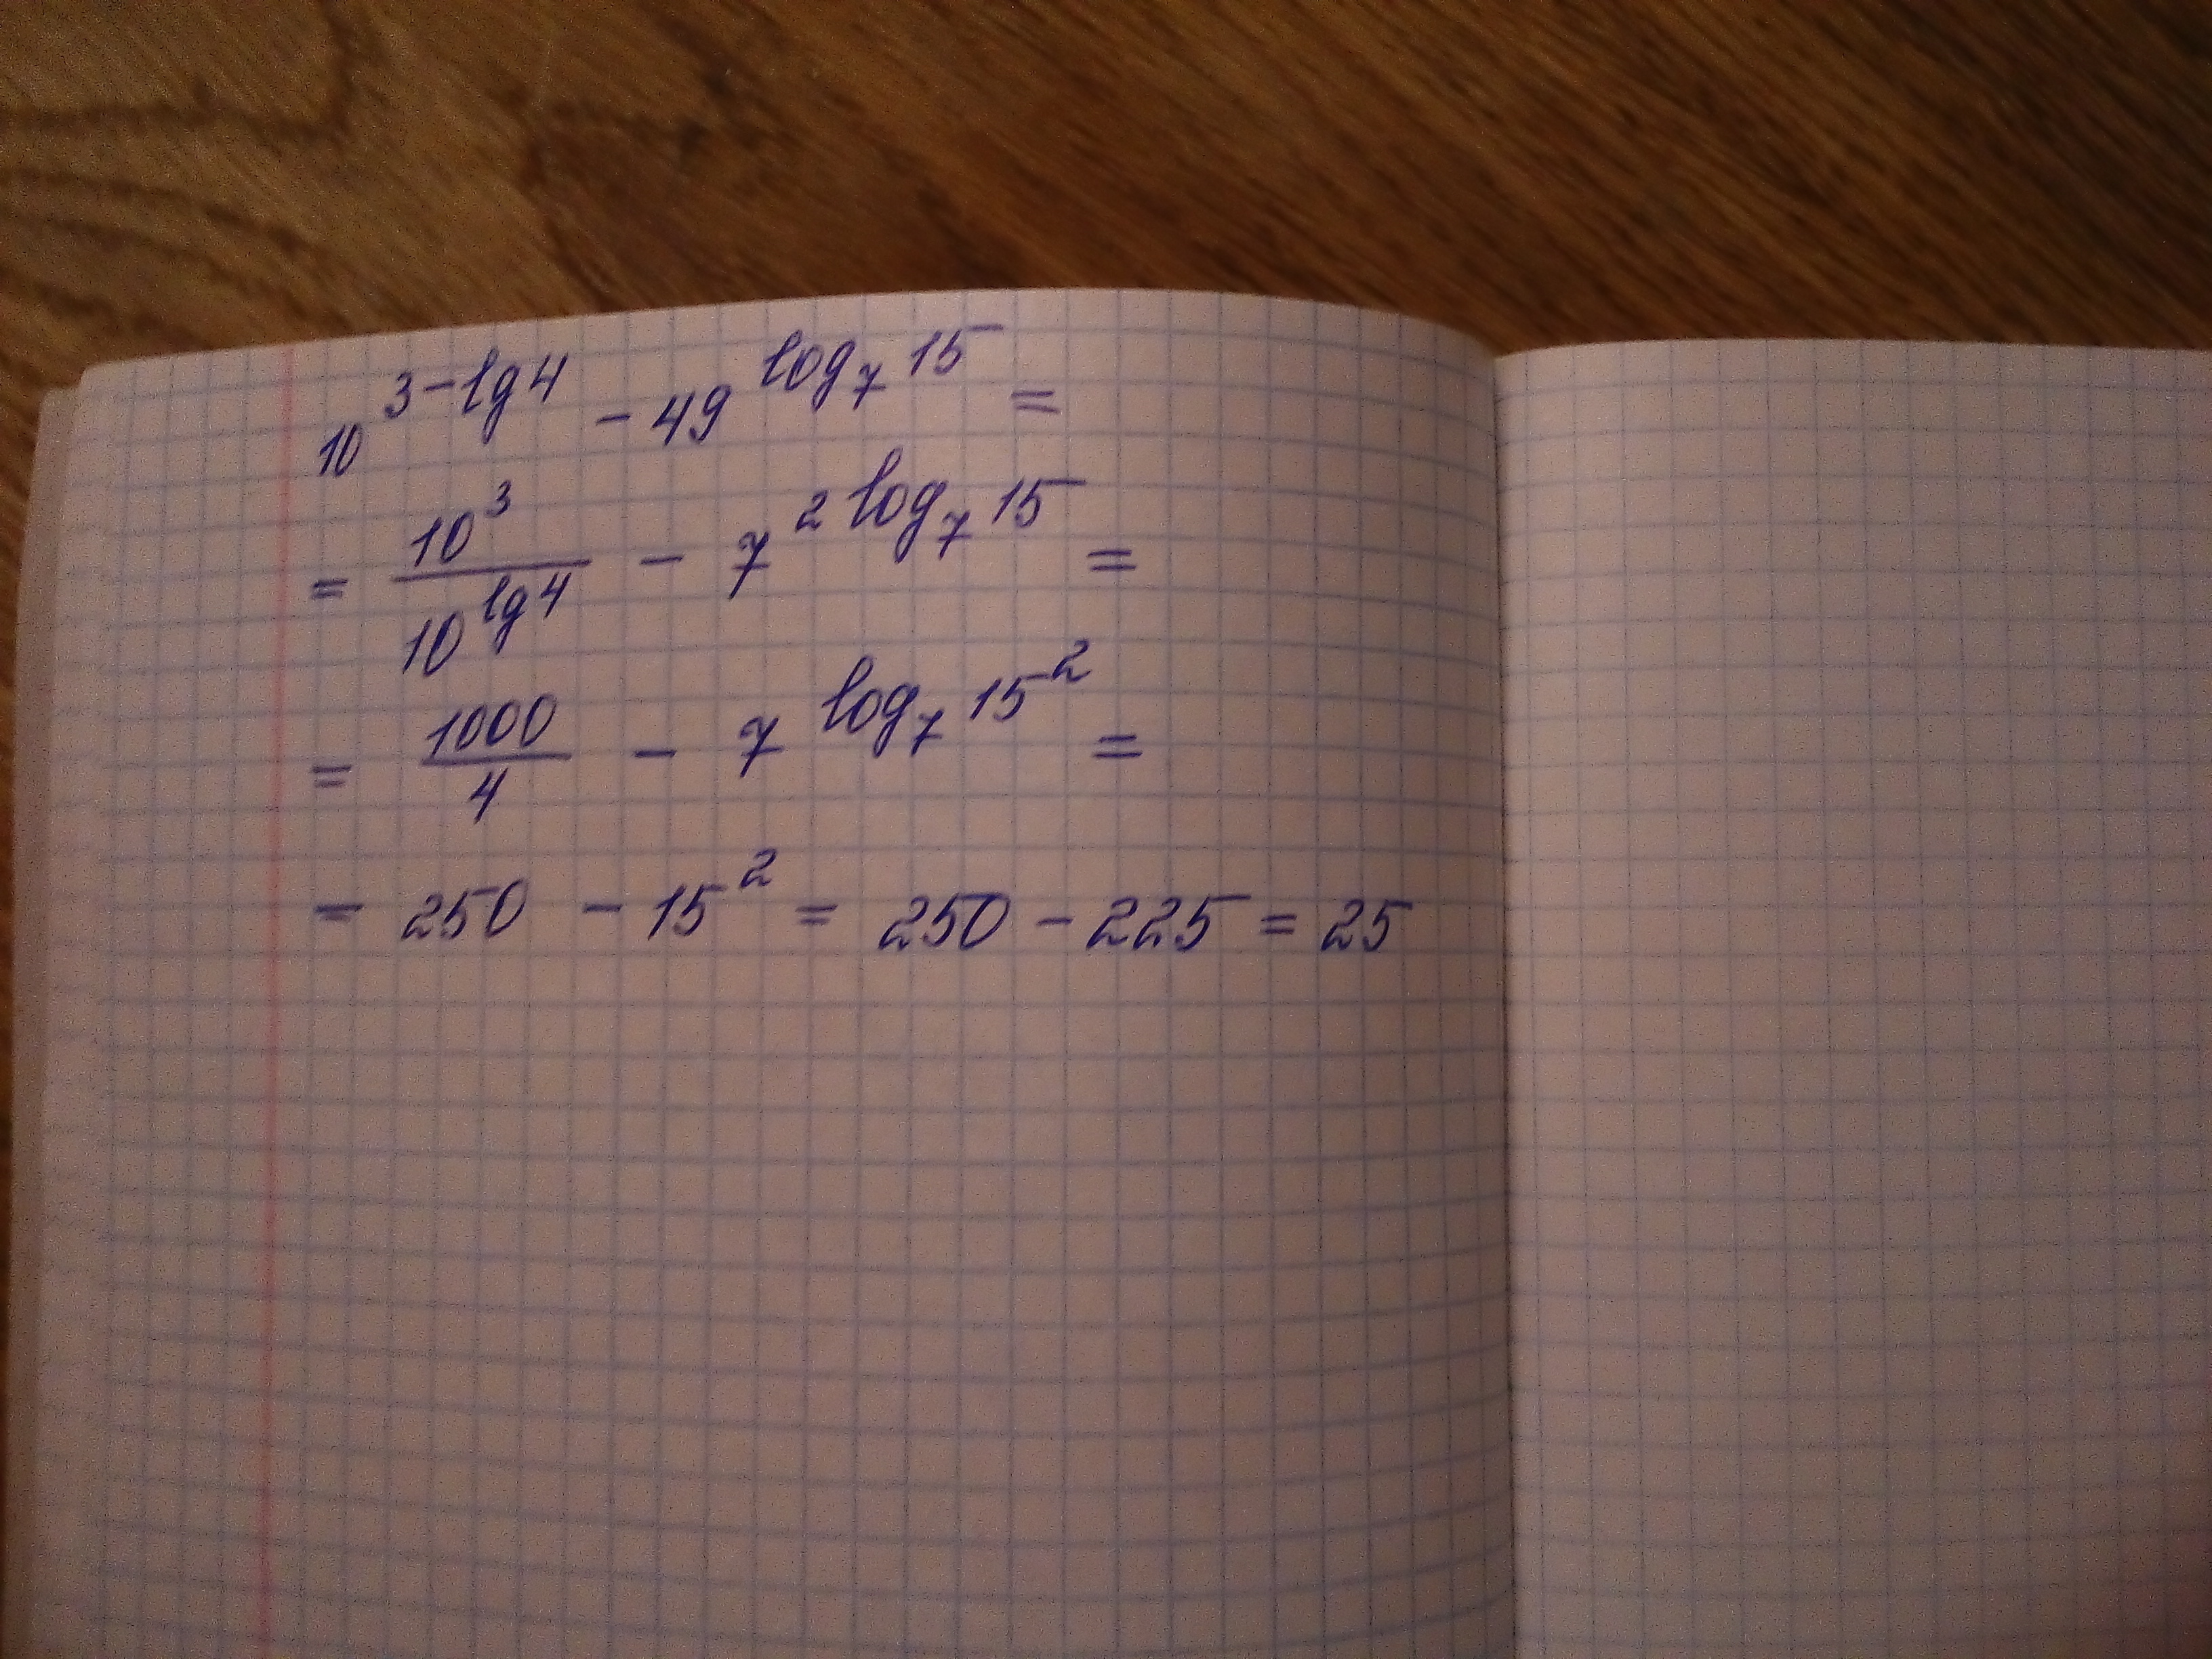 10^{3-lg4} - 49^{log_7 15} =
= \frac{10^3}{10^{lg4}} - 7^{2log_7 15} =
= \frac{1000}{4} - 7^{log_7 15^2} =
= 250 - 15^2 = 250 - 225 = 25